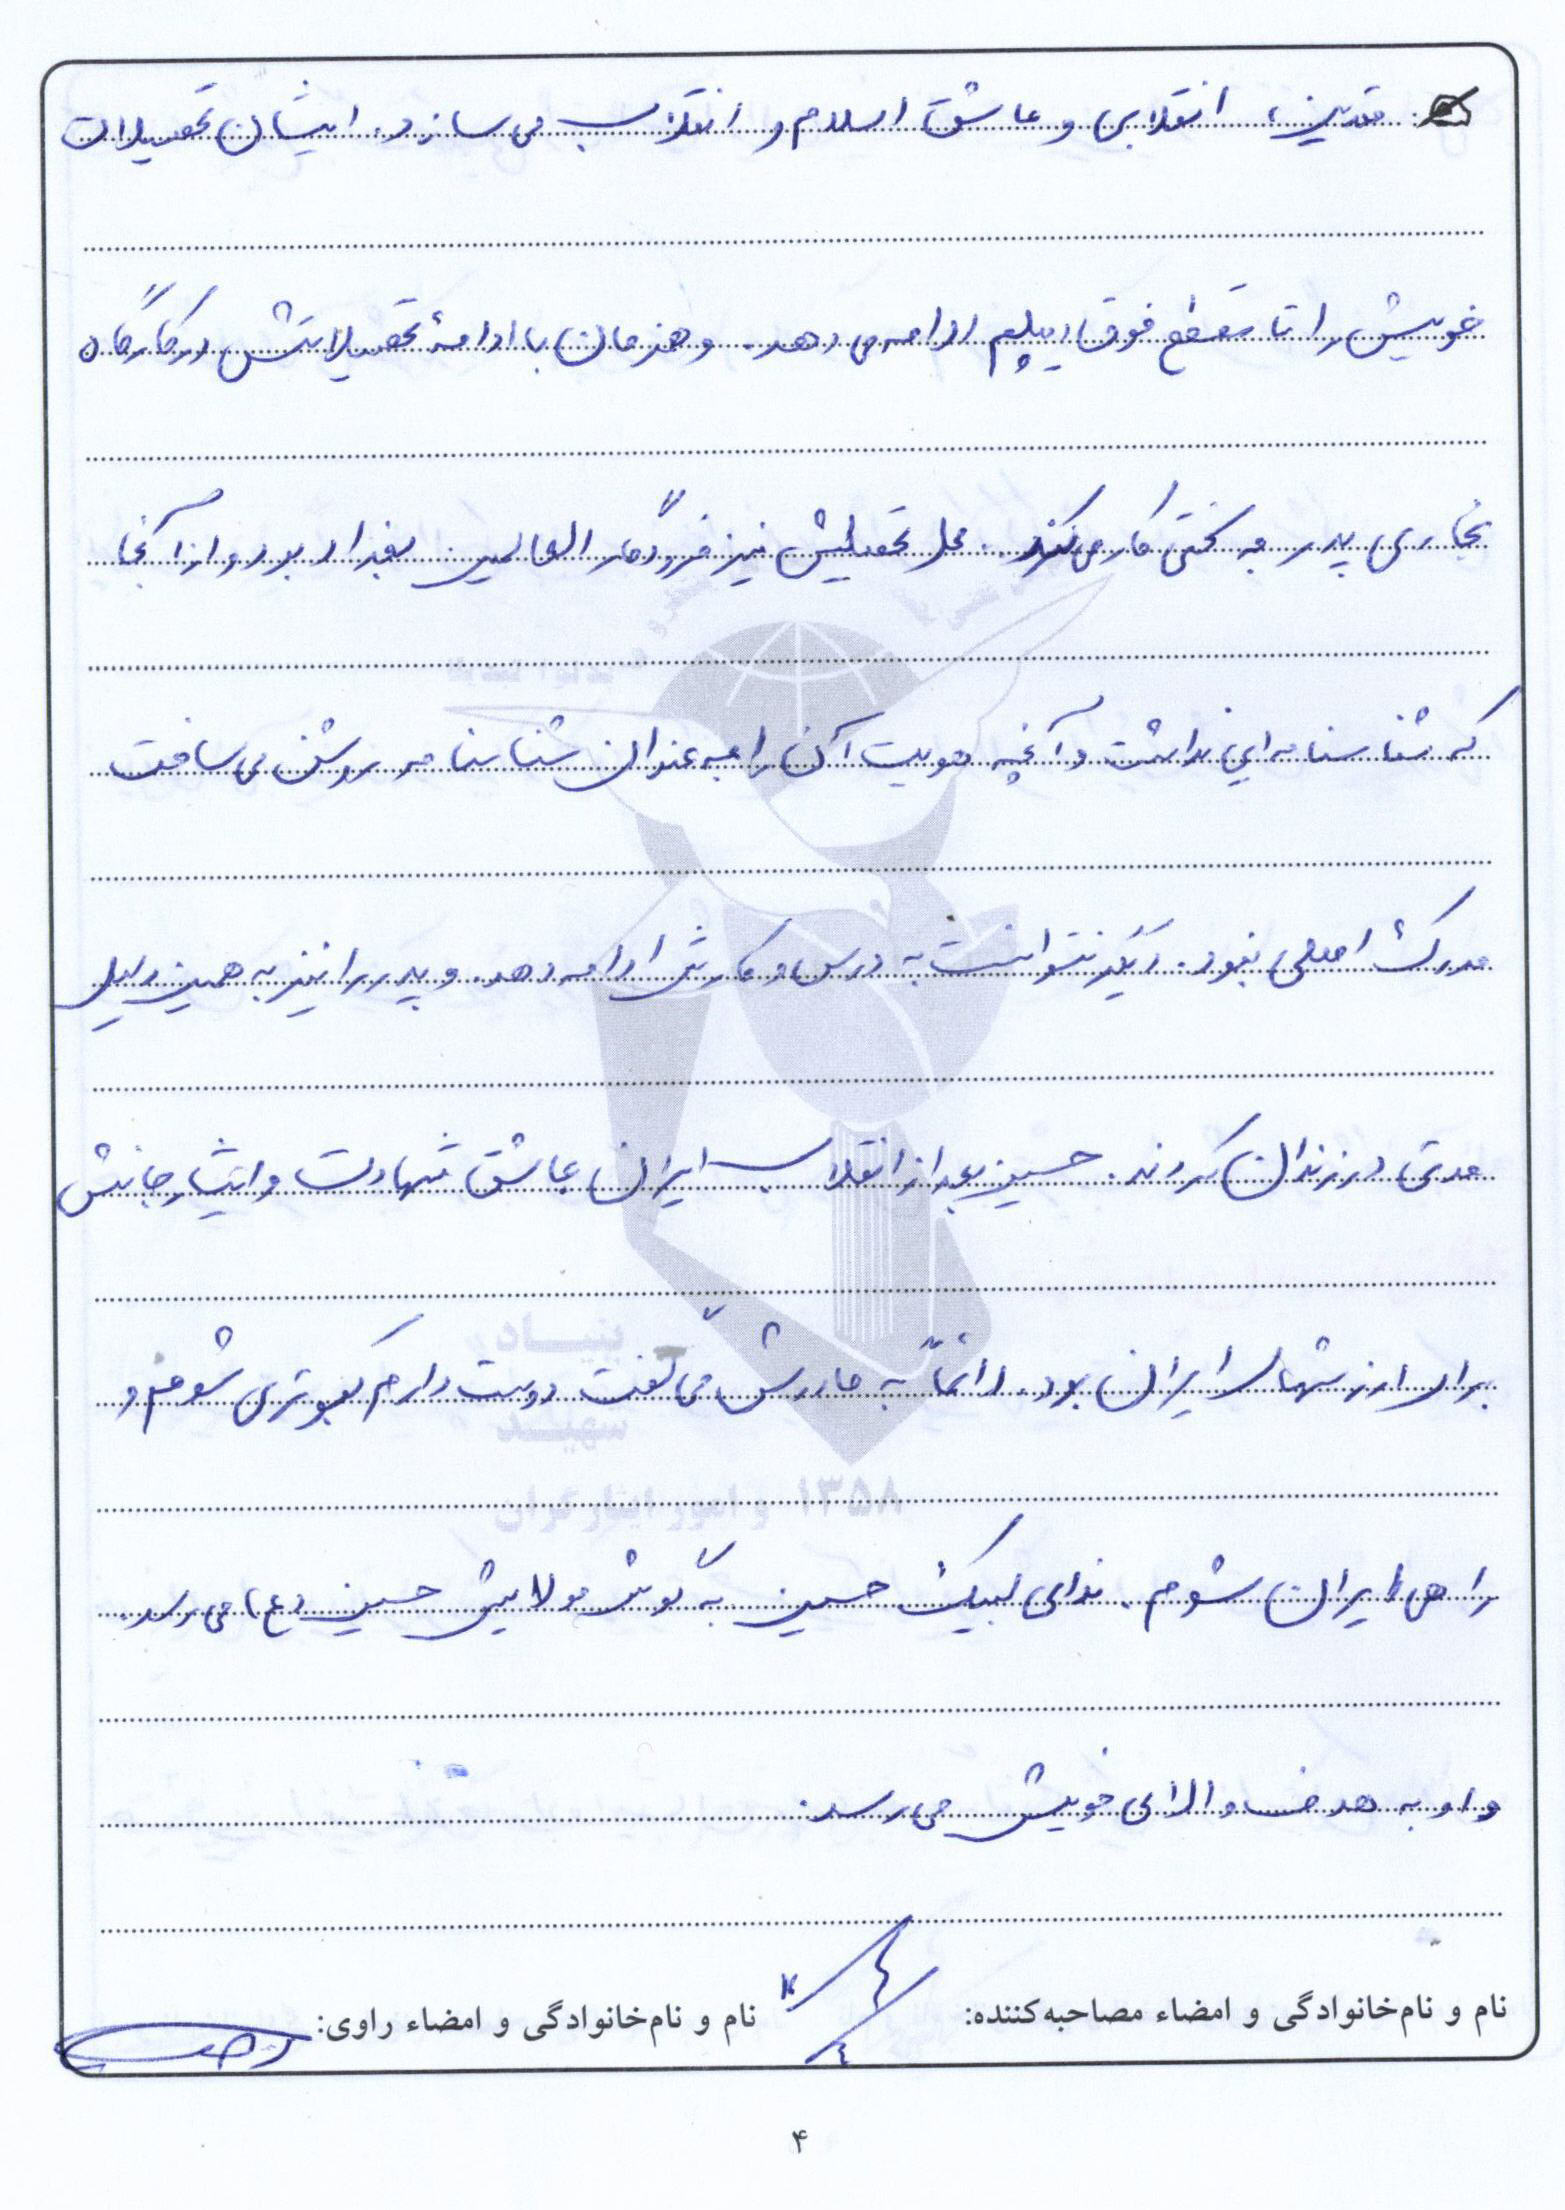 متدین، انقلابی و عاشق اسلام و انقلاب می سازد. ایشان تحصیلات
خویش را تا مقطع فوق دیپلم ادامه می دهد. و همزمان با ادامهٔ تحصیلاتش در کارگاه
نجاری پدر به سختی کار می کند. محل تحصیلش نیز فرودگاه العالمین بغداد بود و از آنجا
که شناسنامه ای نداشت و آنچه هویت آن را به عنوان شناسنامه روشن می ساخت
مدرک اصلی نبود. دیگر نتوانست به درس و کارش ادامه دهد. و پدر را نیز به همین دلیل
مدتی در زندان کردند. حسین بعد از انقلاب ایران عاشق شهادت و ایثار جانش
برای ارزشهای ایران بود. دائماً به مادرش می گفت دوست دارم کبوتری شوم و
راهی ایران شوم. ندای لبیک حسین به گوش مولایش حسین (ع) می رسد.
و او به هدف والای خویش می رسد.
نام و نام‌خانوادگی و امضاء مصاحبه‌کننده:
نام و نام‌خانوادگی و امضاء راوی:
بنیاد
شهید
و امور ایثارگران ۱۳۵۸
۴